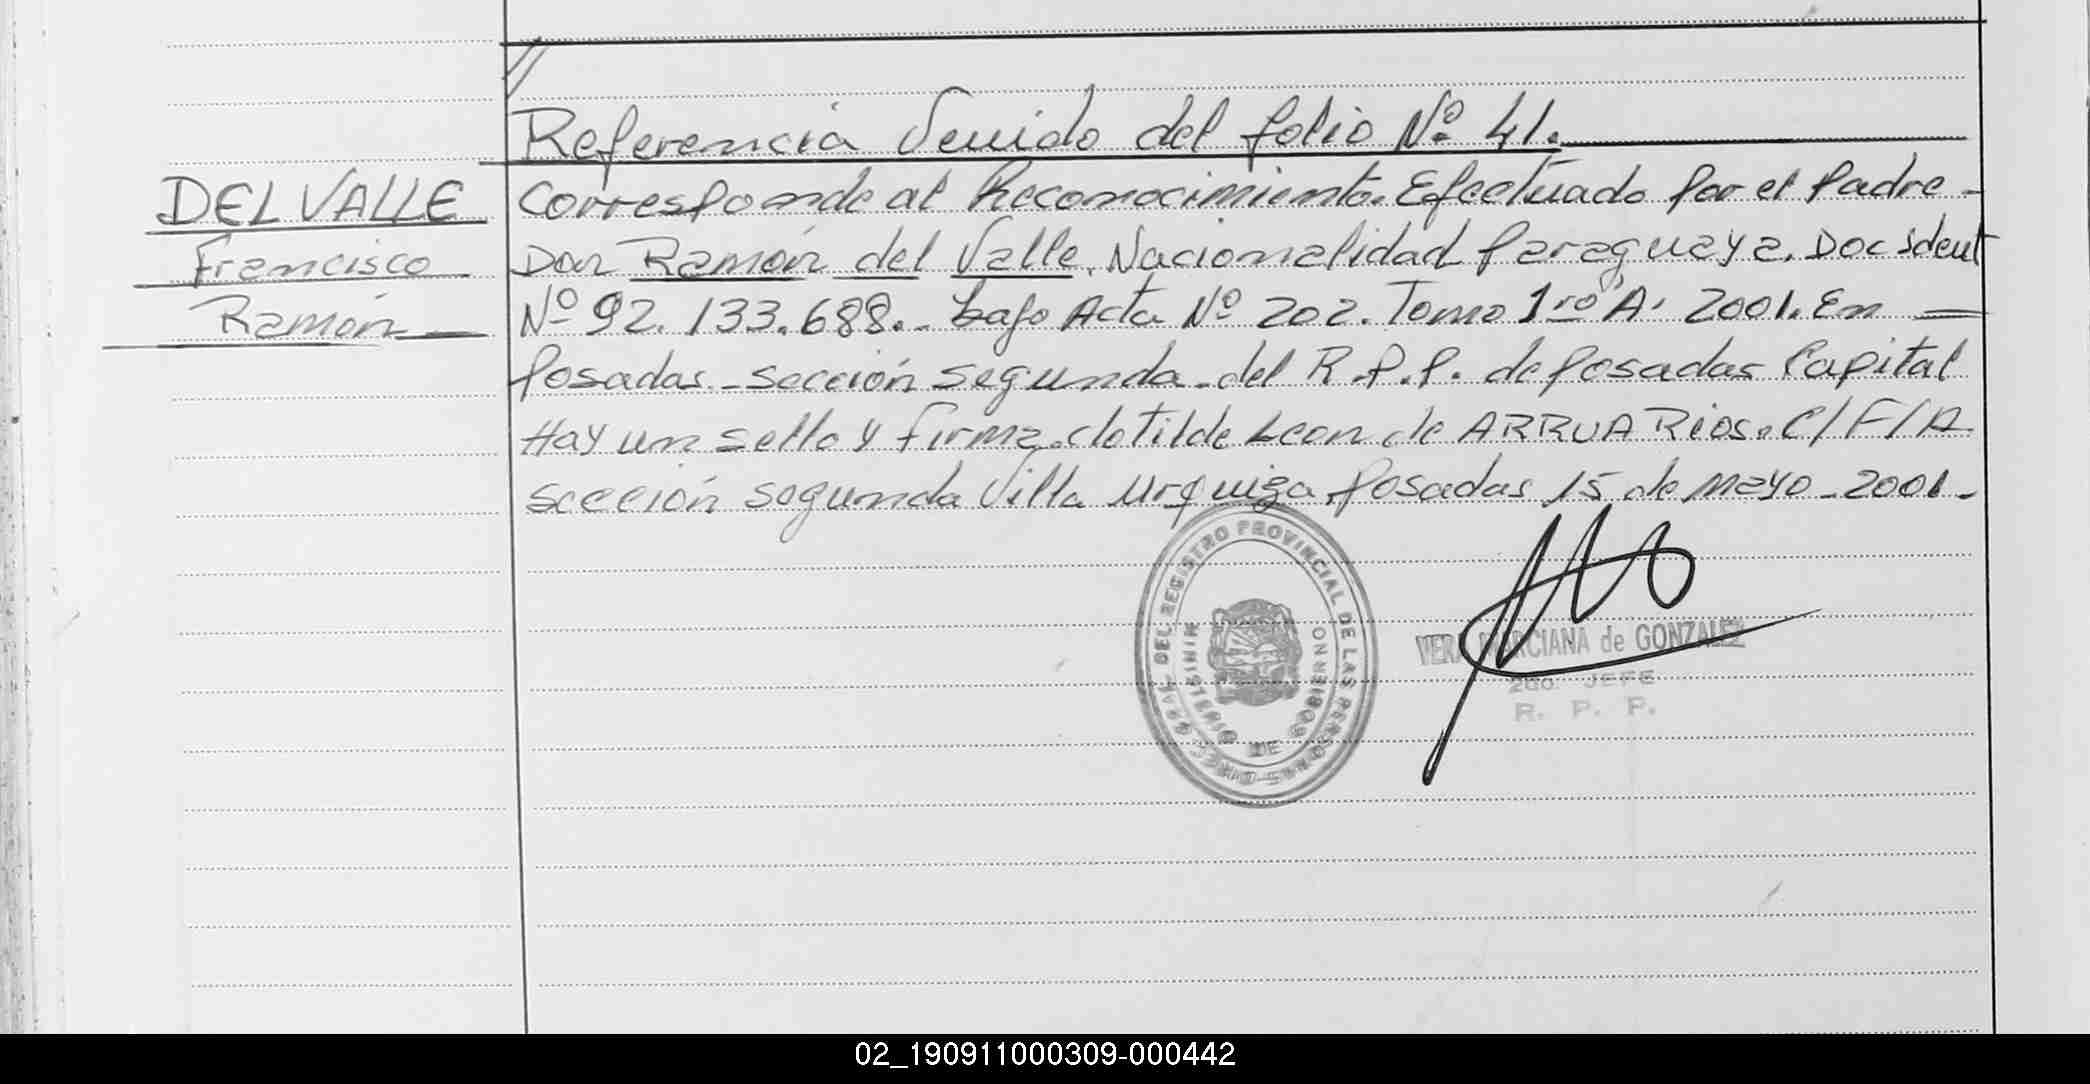 //
Referencia Venido del folio Nº 41.
DEL VALLE
Francisco
Ramón
Corresponde al Reconocimiento. Efectuado por el Padre -
Don Ramón del Valle. Nacionalidad Paraguaya. Doc ident
Nº 92.133.688.- bajo Acta Nº 202. Tomo 1ro "A" 2001. En
Posadas - sección segunda - del R.P.P. de Posadas Capital
Hay un sello y firma. Clotilde Leon de ARRUA Rios. C/F/A
sección segunda Villa Urquiza, Posadas 15 de Mayo - 2001 -
DEL REGISTRO PROVINCIAL DE LAS PERSONAS
MINISTERIO DE GOBIERNO
VERA MARCIANA de GONZALEZ
2do. JEFE
R. P. P.
02_190911000309-000442